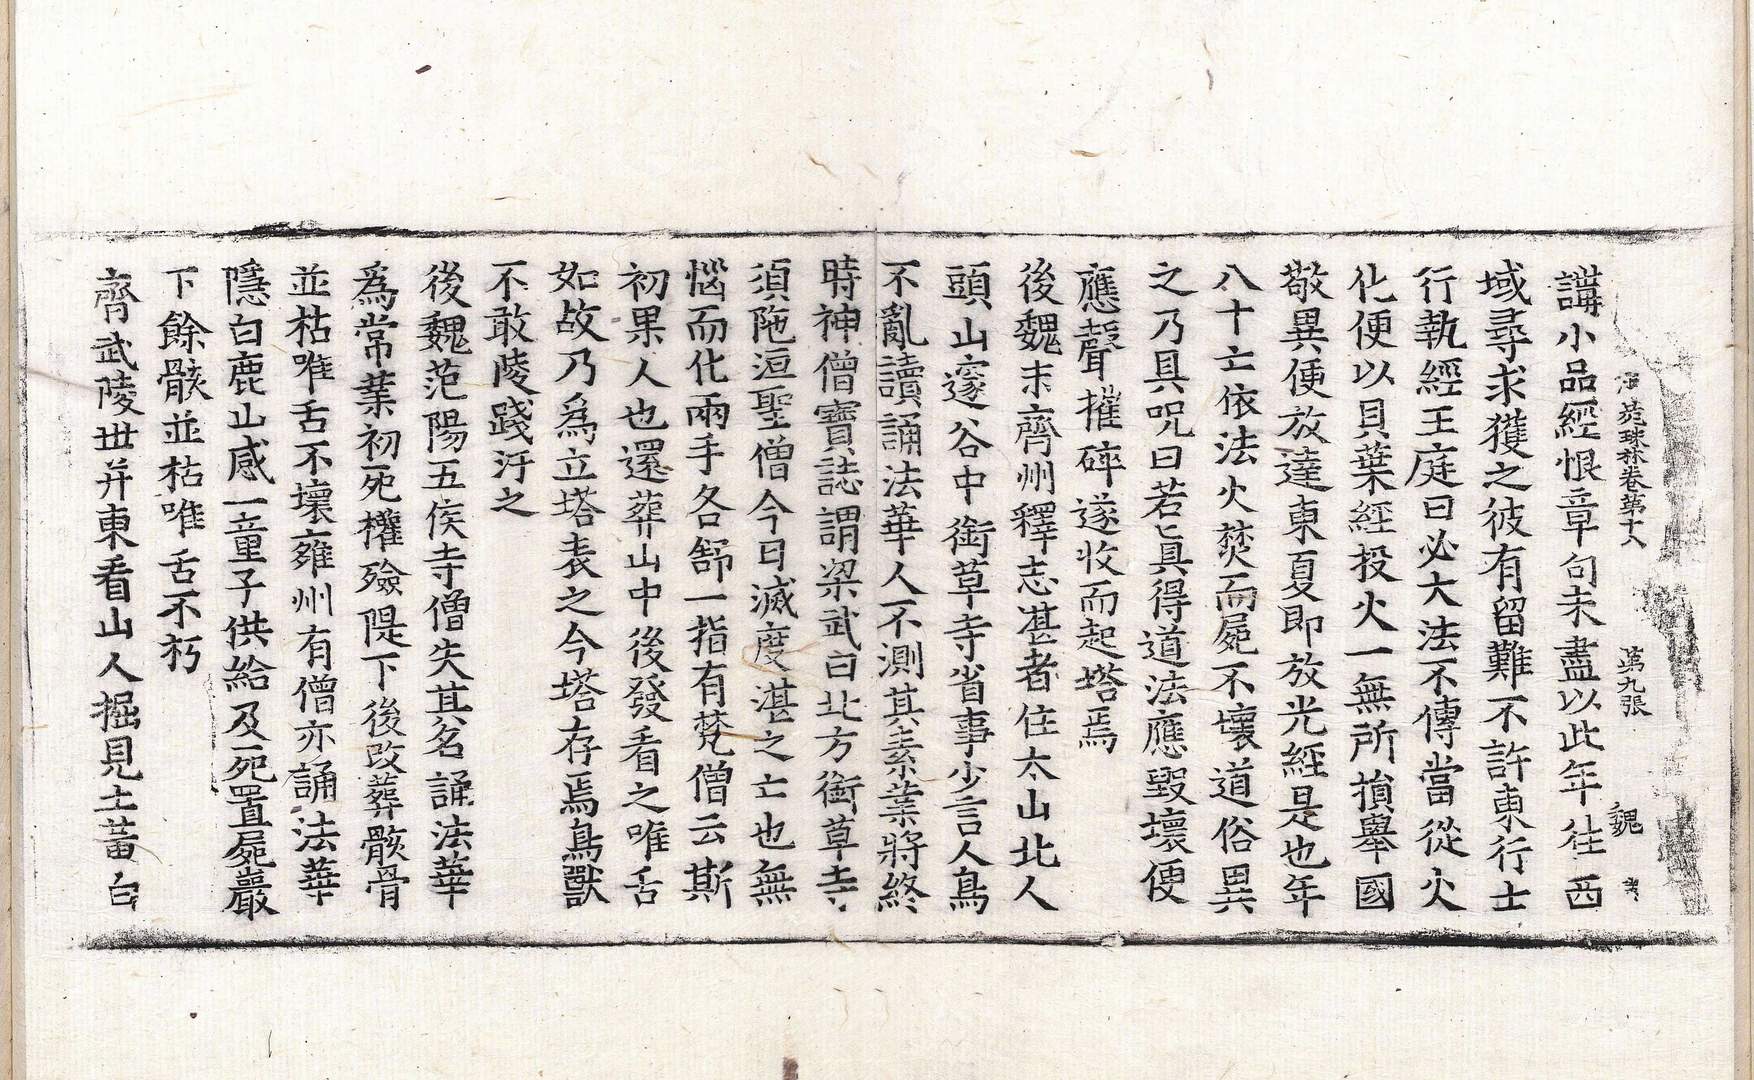 法苑珠林卷第十八 第九張 魏
講小品經恨章句未盡以此年往西
域尋求獲之彼有留難不許東行士
行執經王庭曰必大法不傳當從火
化便以貝葉經投火一無所損舉國
敬異便放達東夏即放光經是也年
八十亡依法火焚而屍不壞道俗異
之乃具呪曰若真得道法應毀壞便
應聲摧碎遂收而起塔焉
後魏末齊州釋志湛者住太山北人
頭山邃谷中銜草寺省事少言人鳥
不亂讀誦法華人不測其素業將終
時神僧寶誌謂梁武曰北方銜草寺
須陁洹聖僧今日滅度湛之亡也無
惱而化兩手各舒一指有梵僧云斯
初果人也還葬山中後發看之唯舌
如故乃為立塔表之今塔存焉鳥獸
不敢陵踐汙之
後魏范陽五侯寺僧失其名誦法華
為常業初死權殮隄下後改葬骸骨
並枯唯舌不壞雍州有僧亦誦法華
隱白鹿山感一童子供給及死置屍巖
下餘骸並枯唯舌不朽
齊武陵世并東看山人掘見土蓄白